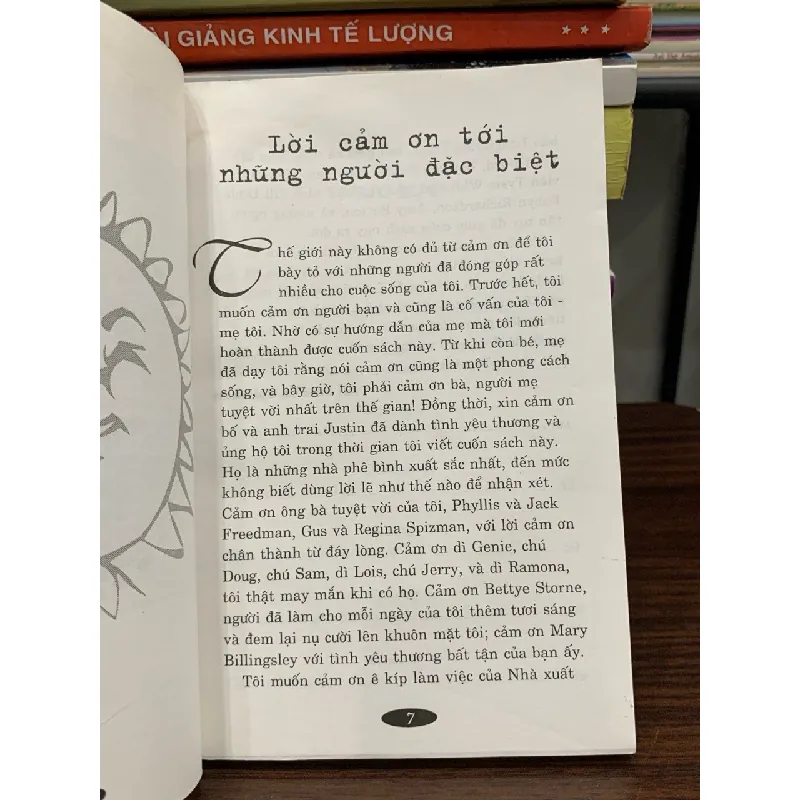 ÀI GIẢNG KINH TẾ LƯỢNG
Lời cảm ơn tới
những người đặc biệt
Thế giới này không có đủ từ cảm ơn để tôi
bày tỏ với những người đã đóng góp rất
nhiều cho cuộc sống của tôi. Trước hết, tôi
muốn cảm ơn người bạn và cũng là cố vấn của tôi -
mẹ tôi. Nhờ có sự hướng dẫn của mẹ mà tôi mới
hoàn thành được cuốn sách này. Từ khi còn bé, mẹ
đã dạy tôi rằng nói cảm ơn cũng là một phong cách
sống, và bây giờ, tôi phải cảm ơn bà, người mẹ
tuyệt vời nhất trên thế gian! Đồng thời, xin cảm ơn
bố và anh trai Justin đã dành tình yêu thương và
ủng hộ tôi trong thời gian tôi viết cuốn sách này.
Họ là những nhà phê bình xuất sắc nhất, đến mức
không biết dùng lời lẽ như thế nào để nhận xét.
Cảm ơn ông bà tuyệt vời của tôi, Phyllis và Jack
Freedman, Gus và Regina Spizman, với lời cảm ơn
chân thành từ đáy lòng. Cảm ơn dì Genie, chú
Doug, chú Sam, dì Lois, chú Jerry, và dì Ramona,
tôi thật may mắn khi có họ. Cảm ơn Bettye Storne,
người đã làm cho mỗi ngày của tôi thêm tươi sáng
và đem lại nụ cười lên khuôn mặt tôi; cảm ơn Mary
Billingsley với tình yêu thương bất tận của bạn ấy.
Tôi muốn cảm ơn ê kíp làm việc của Nhà xuất
7